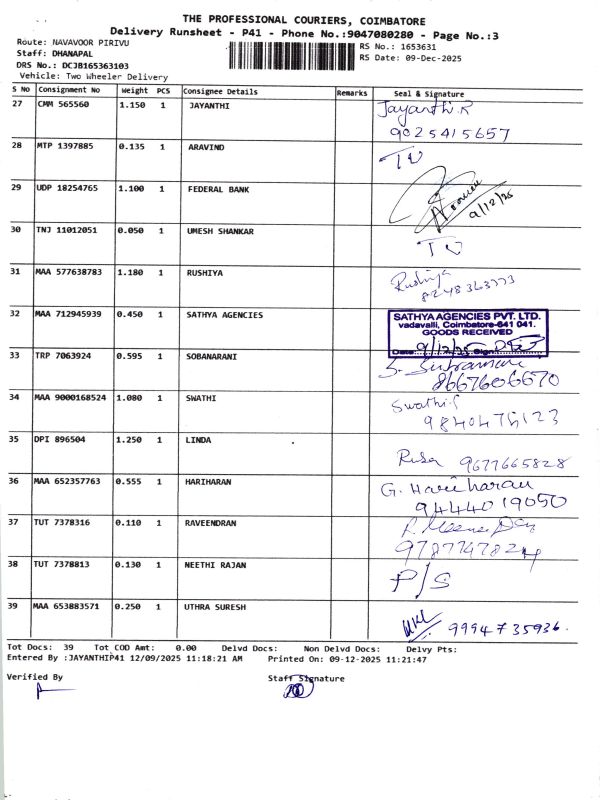 THE PROFESSIONAL COURIERS, COIMBATORE
Delivery Runsheet - P41 - Phone No.:9047080280 - Page No.:3
Route: NAVAVOOR PIRIVU
RS No.: 1653631
Staff: DHANAPAL
RS Date: 09-Dec-2025
DRS No.: DCJB165363103
Vehicle: Two Wheeler Delivery
S No Consignment No Weight PCS Consignee Details Remarks Seal & Signature
27 CMM 565560 1.150 1 JAYANTHI Jayanthi.R
9025415657
28 MTP 1397885 0.135 1 ARAVIND
29 UDP 18254765 1.100 1 FEDERAL BANK
9/12/25
30 TNJ 11012051 0.050 1 UMESH SHANKAR
31 MAA 577638783 1.180 1 RUSHIYA Rushiya
32 MAA 712945939 0.450 1 SATHYA AGENCIES
SATHYA AGENCIES PVT. LTD.
vadavalli, Coimbatore-641 041.
GOODS RECEIVED
Date: 9/12/25 Sign:
33 TRP 7063924 0.595 1 SOBANARANI
8667606670
34 MAA 9000168524 1.080 1 SWATHI Swathi.S
9840475123
35 DPI 896504 1.250 1 LINDA
9677665828
36 MAA 652357763 0.555 1 HARIHARAN G. Hariharan
9444019050
37 TUT 7378316 0.110 1 RAVEENDRAN
9787747824
38 TUT 7378813 0.130 1 NEETHI RAJAN P/S
39 MAA 653883571 0.250 1 UTHRA SURESH
9994735936.
Tot Docs: 39 Tot COD Amt: 0.00 Delvd Docs: Non Delvd Docs: Delvy Pts:
Entered By :JAYANTHIP41 12/09/2025 11:18:21 AM Printed On: 09-12-2025 11:21:47
Verified By Staff Signature